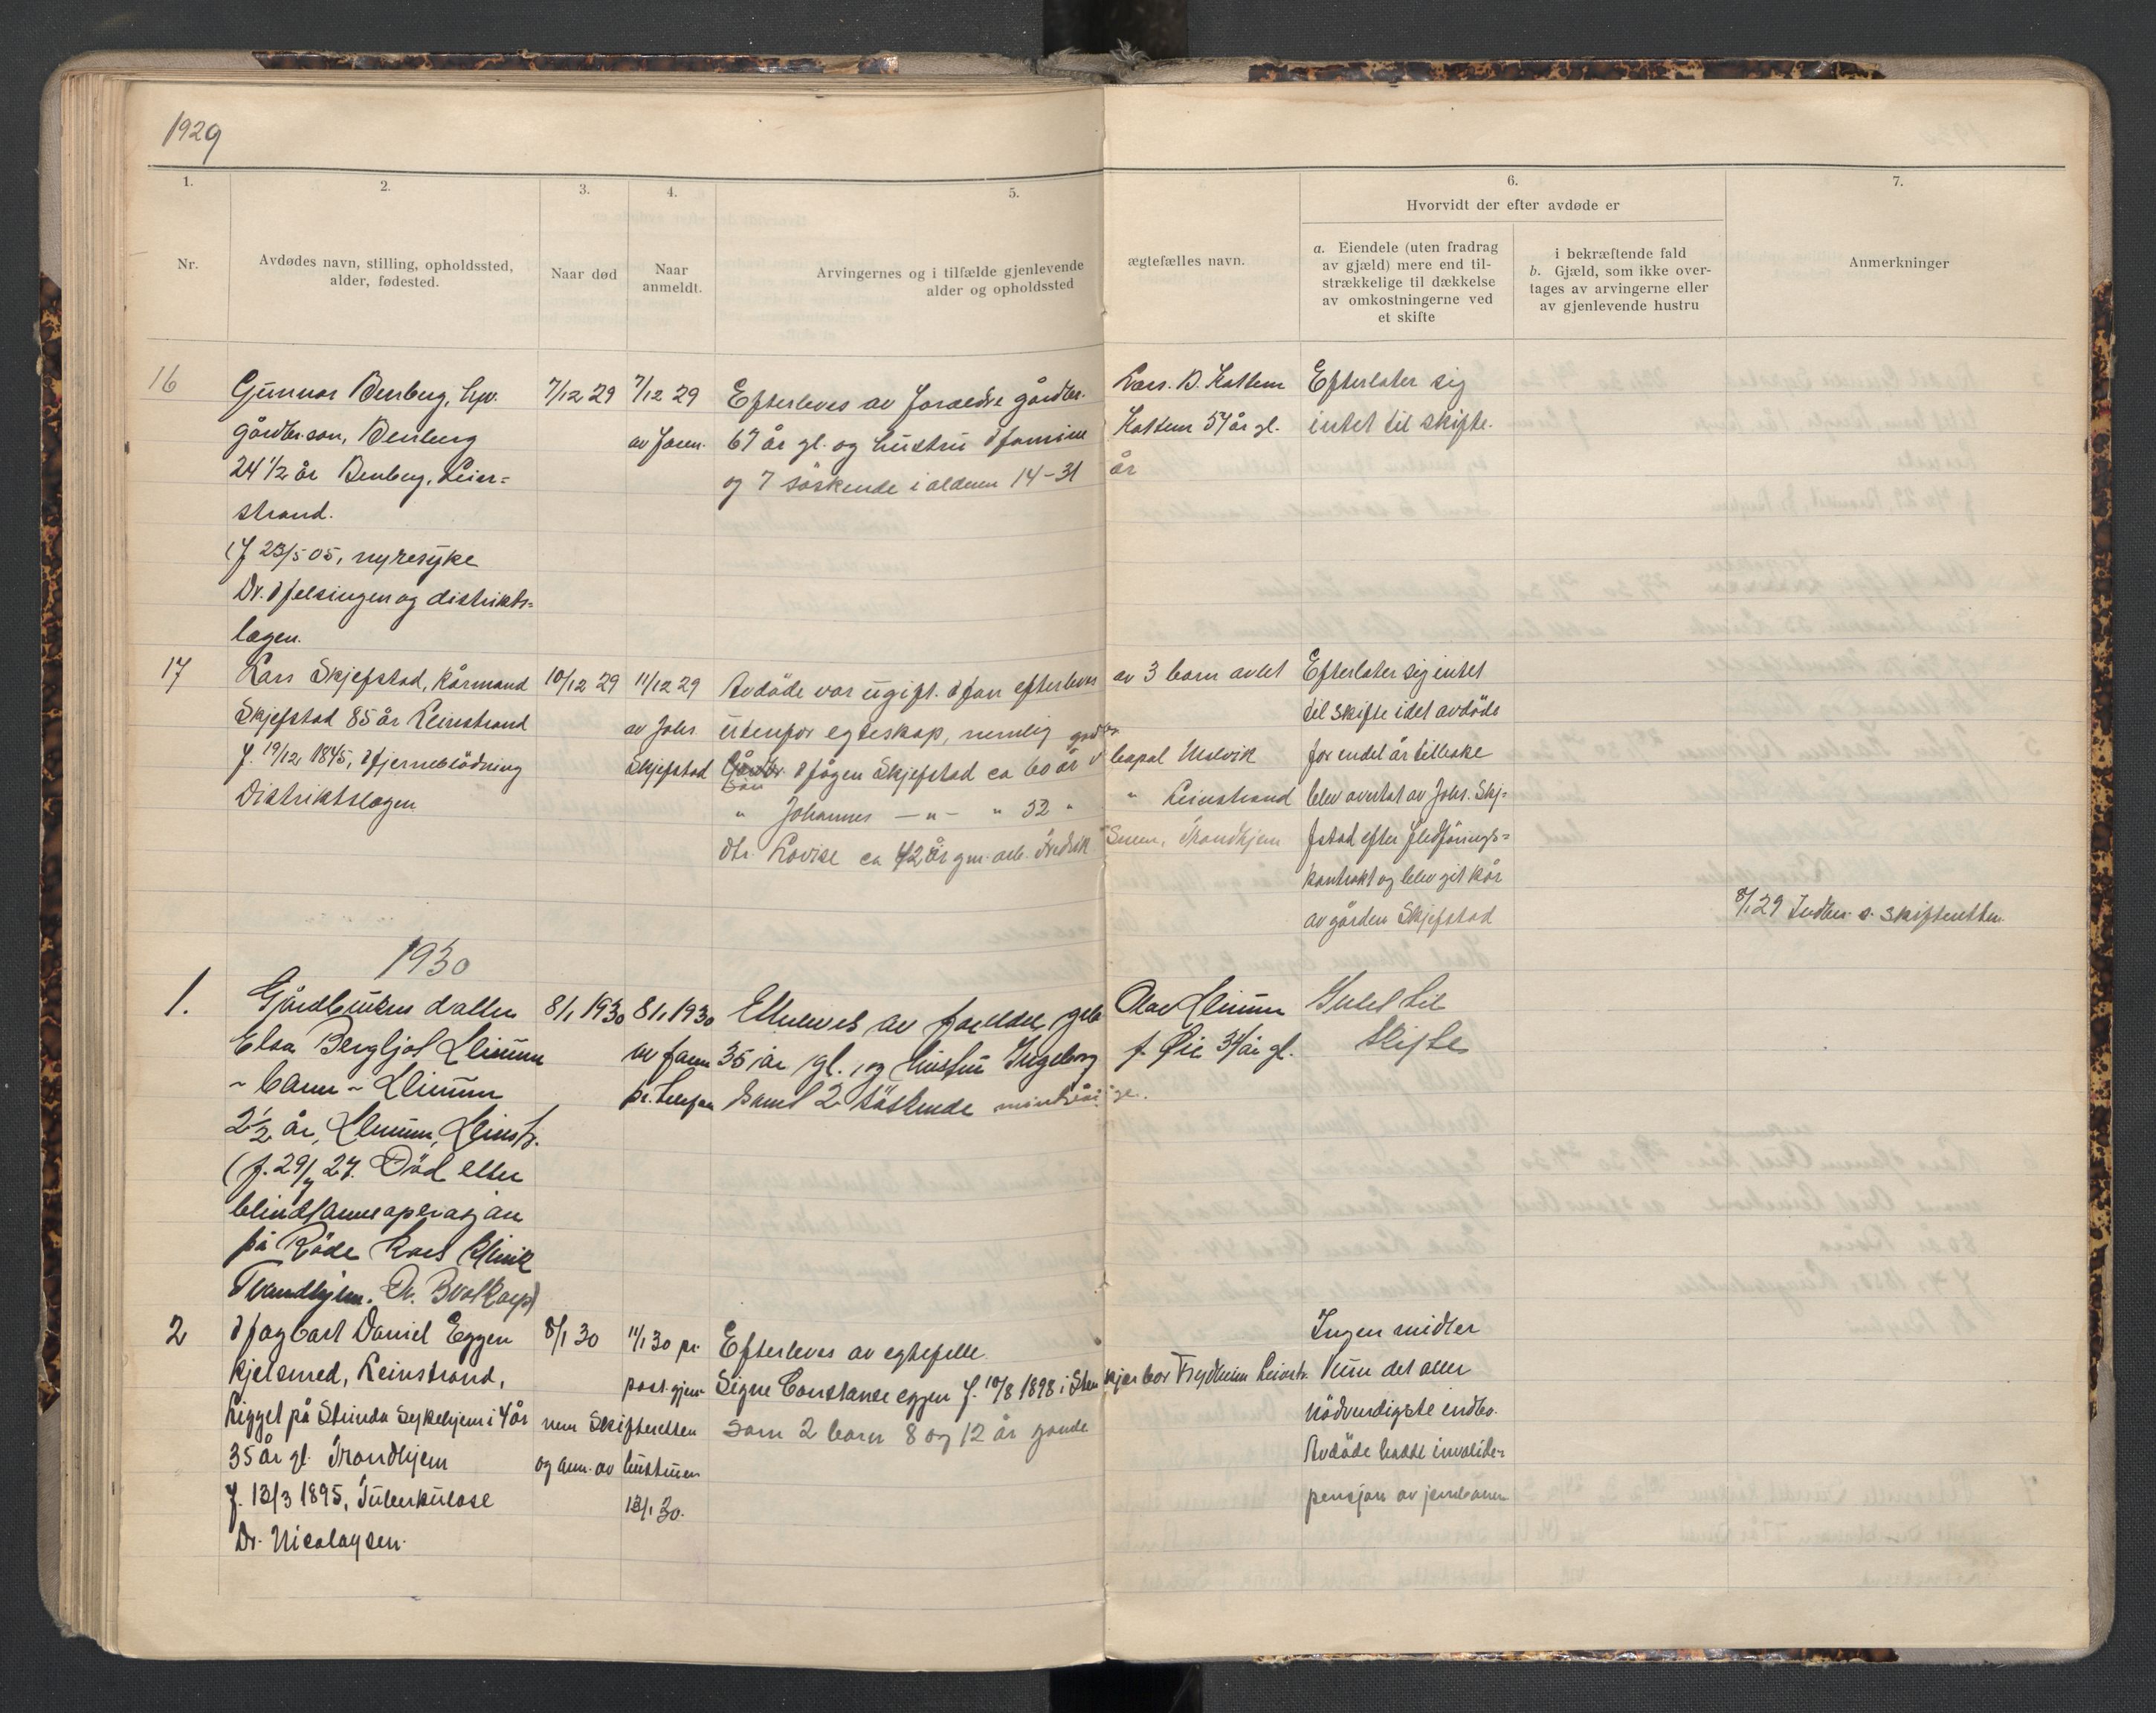 1929
1.
2.
3.
4.
5.
6.
7.
Nr.
Avdødes navn, stilling, opholdssted,
alder, fødested.
Naar død
Naar
anmeldt.
Arvingernes og i tilfælde gjenlevende
alder og opholdssted
ægtefælles navn.
Hvorvidt der efter avdøde er
a. Eiendele (uten fradrag
av gjæld) mere end til-
strækkelige til dækkelse
av omkostningerne ved
et skifte
i bekræftende fald
b. Gjæld, som ikke over-
tages av arvingerne eller
av gjenlevende hustru
Anmerkninger
16
Gunnar Benberg,
gårdbr.son, Benberg
24 1/2 år Benberg, Lein=
strand.
(f 23/5 05, nyresyke
Dr. Helsingen og distrikts=
lægen.
7/12 29
7/12 29
av faren.
Efterleves av foreldre gårdbr.
67 år gl. og hustru
og 7 søskende i alderen 14-31
Lars. B. Kattem
Kattem 57 år gl.
år
Efterlater sig
intet til skifte.
17
Lars Skjefstad, kårmand
Skjefstad 85 år Leinstrand
f. 19/12 1845, Hjerneblödning
Distriktslægen
10/12 29
11/12 29
av Johs
Skjefstad
Avdöde var ugift. Han efterleves
utenfor egteskap, nemlig
Hågen Skjefstad ca 60 år
" Johannes —"— " 52 "
dtr. Lovise ca 42 år gm. arb. Fredrik
av 3 barn avlet
Malvik
" Leinstrand
Trondhjem
Efterlater sig intet
til skifte idet avdöde
for endel år tilbake
blev overtat av Johs. Skj=
fstad efter fledförings=
kontrakt og blev git kår
av gården Skjefstad
8/1 29 Indber. s. skifteretten
1930
1.
Gårdbruker datter
Elsa Bergljot Klemm
~ barn ~
2 1/2 år, Leinstr.
(f. 29/7 27. Död etter
blindtarmoperasjon
på Röde Kors Klinik
Trondhjem. Dr.
8/1 1930
8/1 1930
av faren
pr. telefon
Etterleves av foreldre grb
35 år gl. og hustru Ingeborg
samt 2 söskende mindreårige.
Olav
f. Øie 34 år gl.
Intet til
Skifte
2
Hagbart Daniel Eggen
kjelsmed, Leinstrand,
Ligget på Strinda Sykehjem i 4 år
35 år gl. Trondhjem
f. 13/3 1895, Tuberkulose
Dr. Nicolaysen.
8/1 30
11/1 30 pr.
post gjen-
nem Skifteretten
og anm. av hustruen
13/1 30.
Efterleves av egtefelle
Signe Constance Eggen f. 10/8 1898 i Stenkjær bor Frydheim Leinstr.
Sam 2 barn 8 og 12 år gamle
Ingen midler
Kun det aller
nödvendigste indbo.
Avdöde hadde invalide=
pensjon av jernbanen